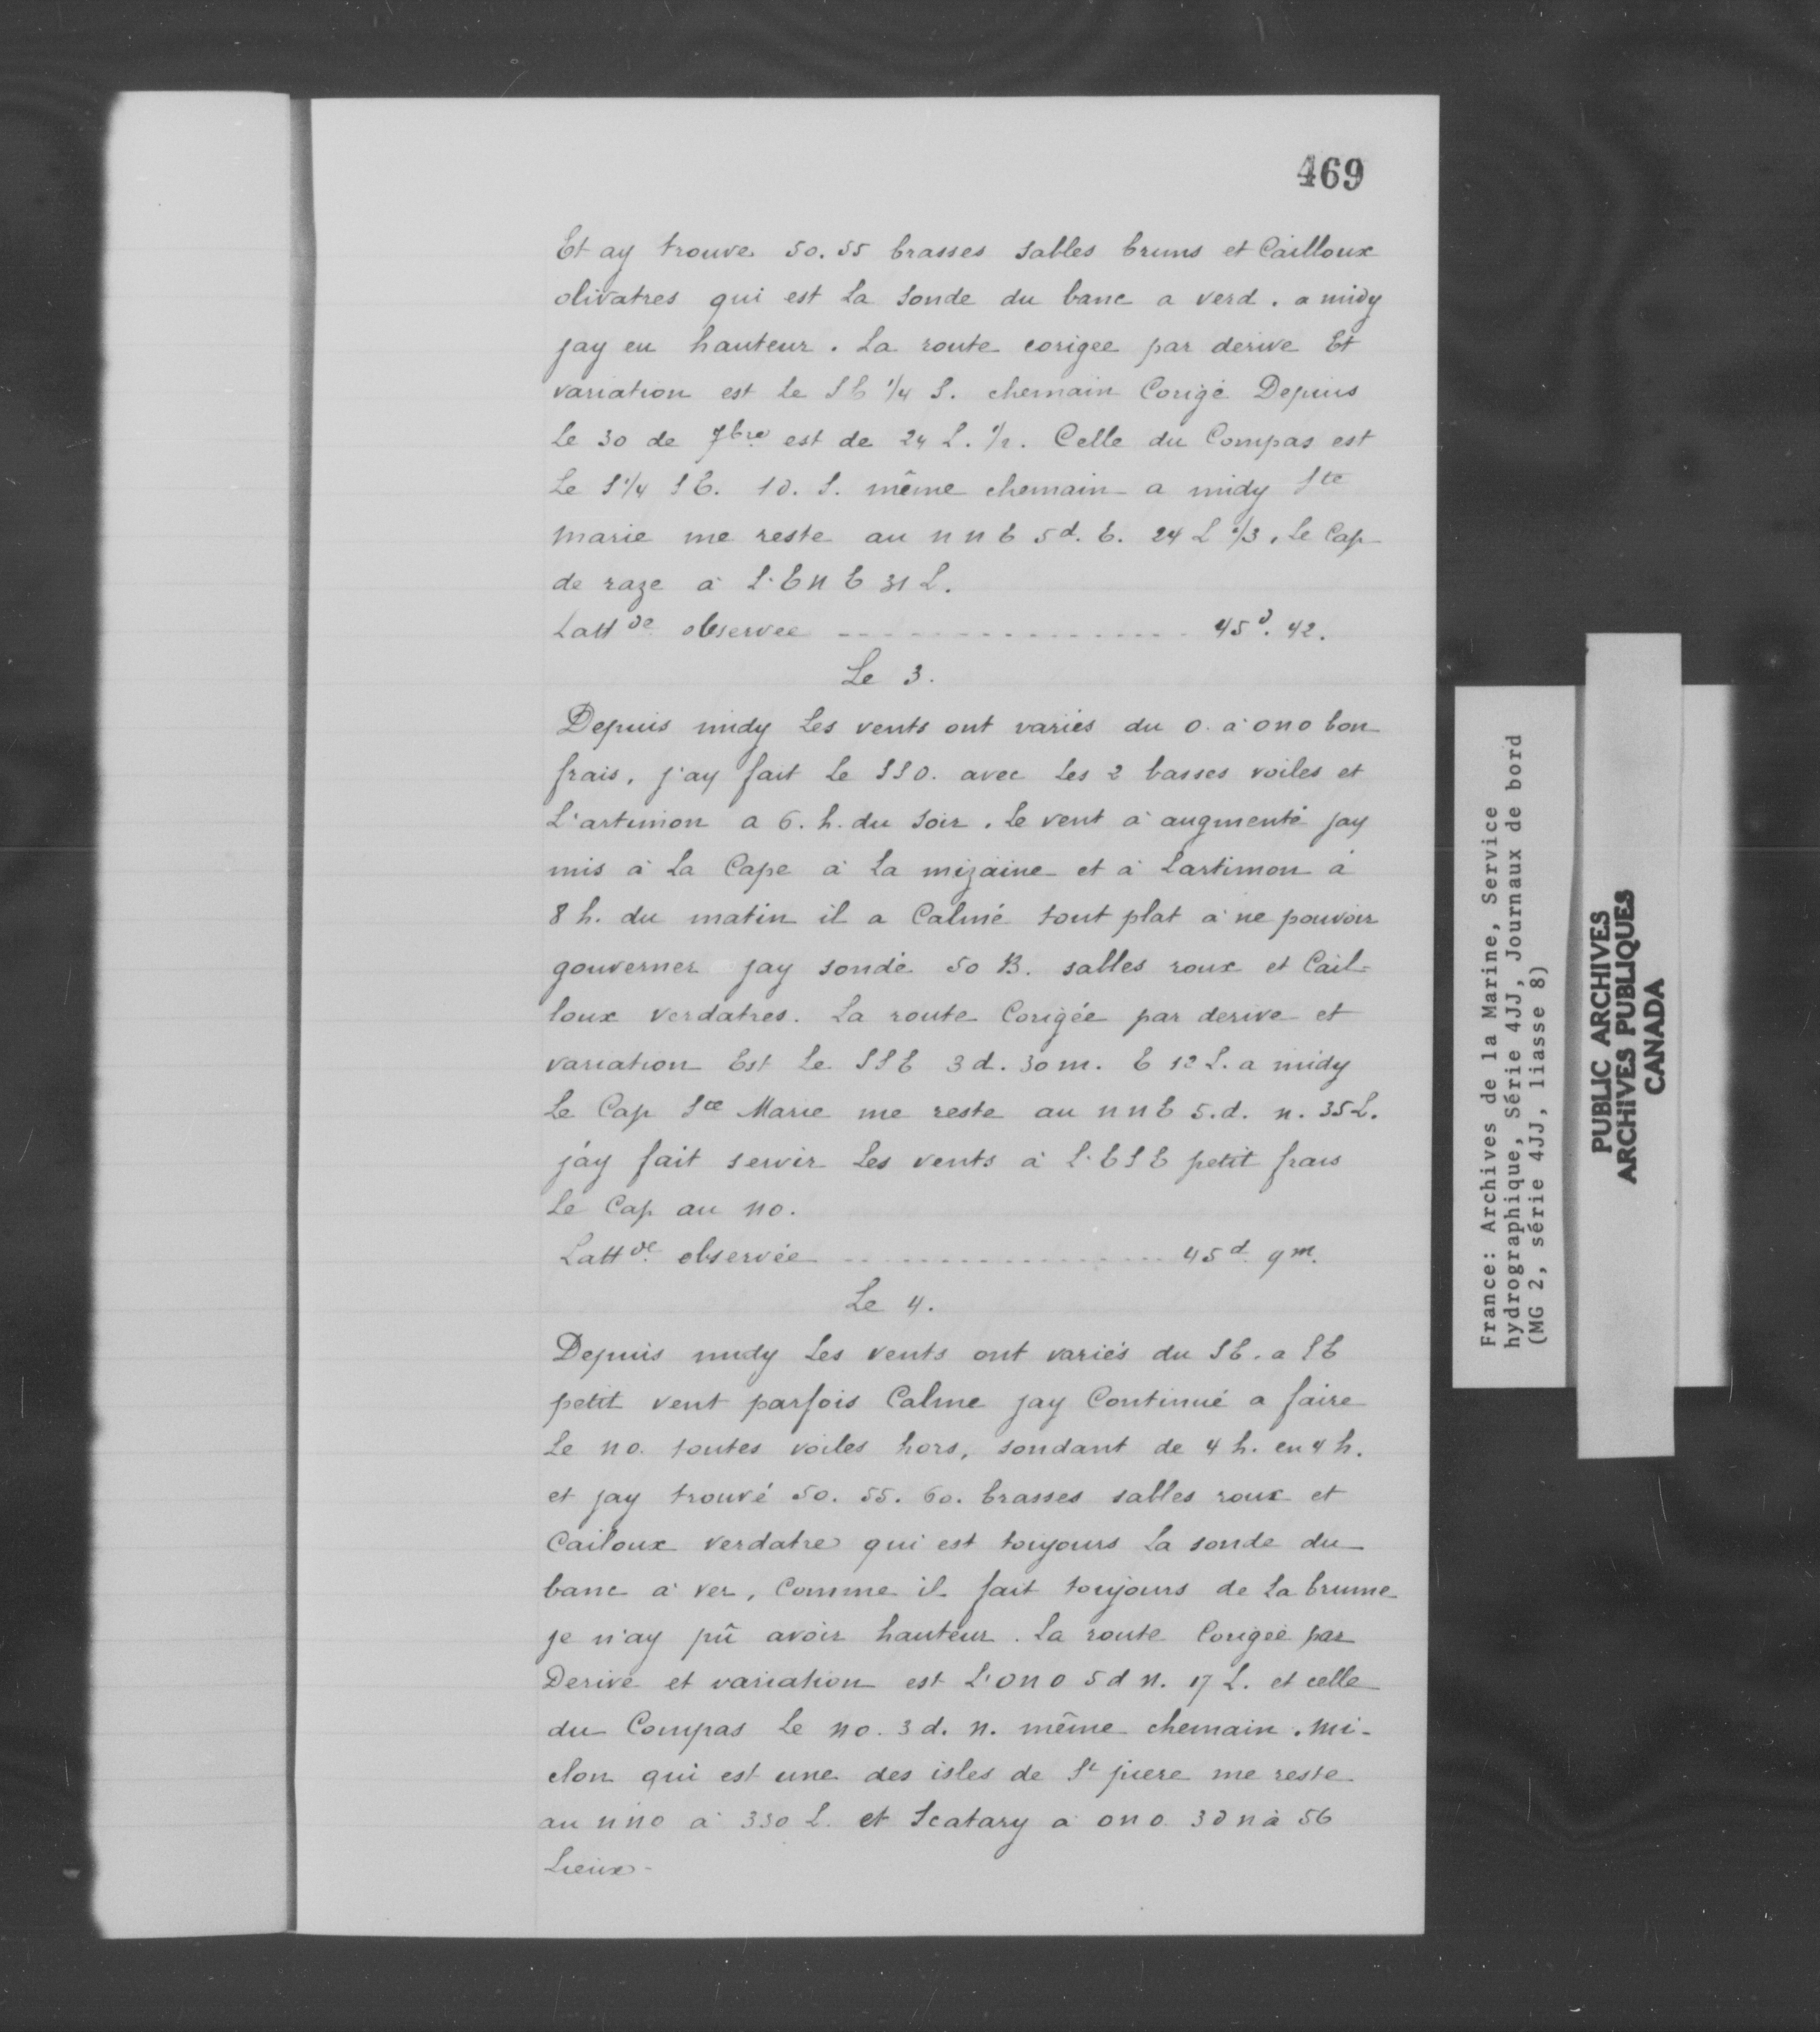 469
Et ay trouve 50. 55 brasses sables bruns et Cailloux
olivatres qui est la sonde du banc a verd. a midy
jay eu hauteur. La route corigee par derive Et
variation est le S E 1/4 S. chemain Corigé Depuis
Le 30 de 7bre est de 24 L. 1/2. Celle du Compas est
Le S 1/4 S E. 10. S. même chemain a midy Ste
Marie me reste au n n E 5 d. E. 24 L 2/3. Le Cap
de raze à L'E n E 31 L.
Lattde observee ---------------- 45d. 42.
Le 3.
Depuis midy Les vents ont variés du O. à ono bon
frais, j'ay fait le SSO. avec les 2 basses voiles et
L'artimon a 6. h. du soir. Le vent à augmenté jay
mis à la Cape à la mizaine et à Lartimon à
8 h. du matin il a Calmé tout plat à ne pouvoir
gouverner jay sondé 50 B. salles roux et Cail-
loux verdatres. La route Corigée par derive et
variation Est Le SSE 3 d. 30 m. E 12 L. a midy
Le Cap Ste Marie me reste au n n E 5. d. n. 35 L.
j'ay fait servir Les vents à L'ESE petit frais
Le Cap au no.
Lattde observée ---------------- 45d 9m.
Le 4.
Depuis midy Les vents ont variés du SE. a SE
petit vent parfois Calme jay Continué a faire
Le no. toutes voiles hors, sondant de 4 h. en 4 h.
et jay trouvé 50. 55. 60. brasses salles roux et
Cailoux verdatre qui est toujours La sonde du
banc à ver, Comme il fait toujours de La brume
je n'ay pû avoir hauteur. La route Corigée par
Derive et variation est L'ono 5 d n. 17 L. et celle
du Compas Le no. 3 d. n. même chemain. Mi-
clon qui est une des isles de St piere me reste
au nno à 330 L. et Scatary à ono 3 d n à 56
Lieux-
France: Archives de la Marine, Service
hydrographique, Série 4JJ, Journaux de bord
(MG 2, série 4JJ, liasse 8)
PUBLIC ARCHIVES
ARCHIVES PUBLIQUES
CANADA